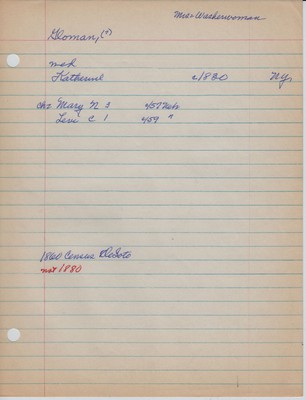 Mrs - Washerwoman
Gloman, (?)
Katherine c1830 NY
ch: Mary N 2 1857 Neb
Levi C 1 1859 "
1860 Census DeSoto
not 1880